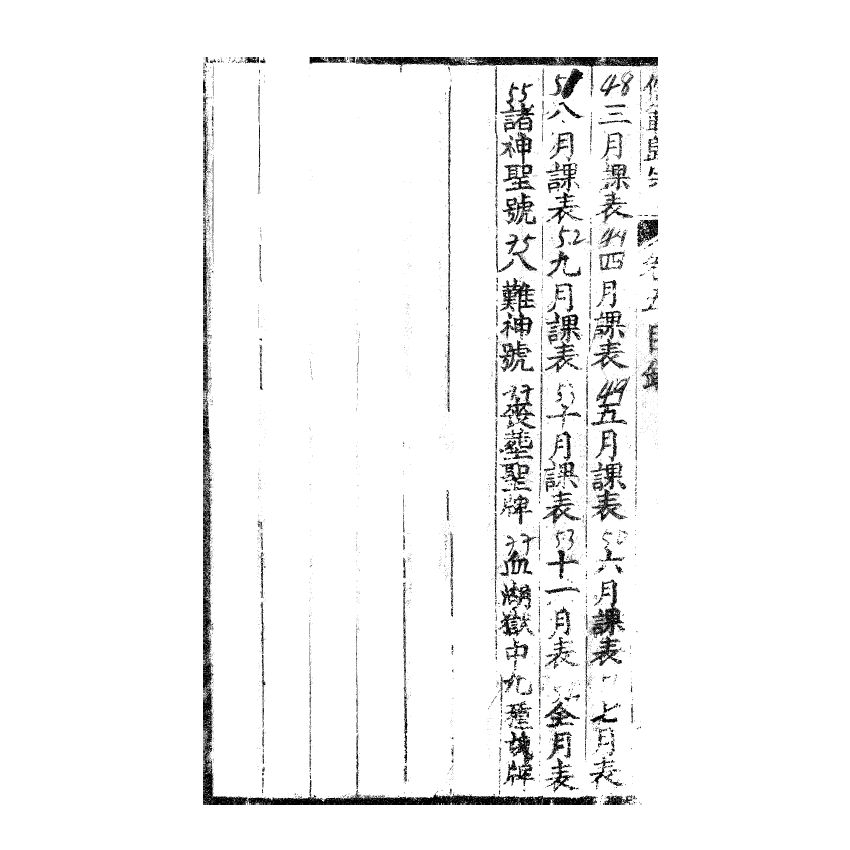 卷五目錄
48三月課表 44四月課表 49五月課表 50六月課表 七月表
51八月課表 52九月課表 53十月課表 53十一月表 全月表
55諸神聖號 75八難神號 77喪塟聖牌 77血湖獄中九種魂牌